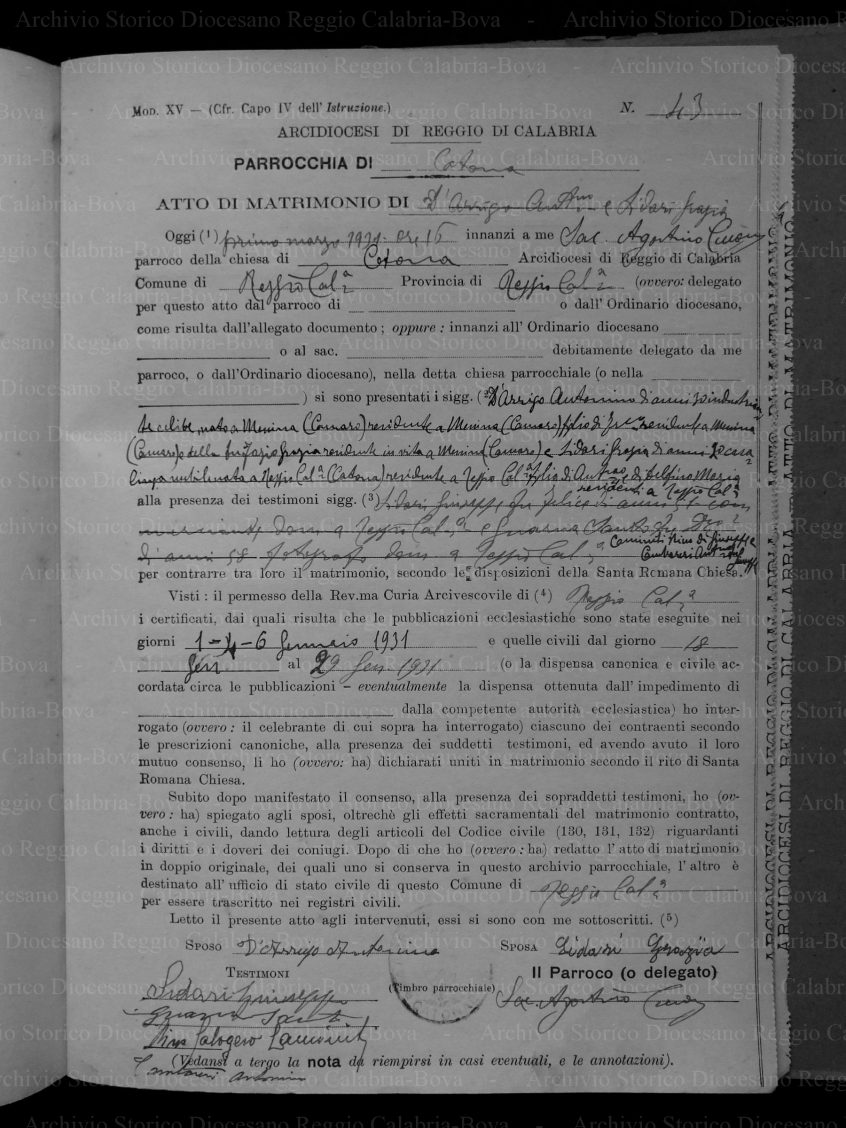 Mod. XV — (Cfr. Capo IV dell' Istruzione.) N. 43
ARCIDIOCESI DI REGGIO DI CALABRIA
PARROCCHIA DI Catona
ATTO DI MATRIMONIO DI D'Arrigo Antno e Sidari Grazia
Oggi (1) primo marzo 1931 ore 16 innanzi a me Sac. Agostino
parroco della chiesa di Catona Arcidiocesi di Reggio di Calabria
Comune di Reggio Cala Provincia di Reggio Cala (ovvero: delegato
per questo atto dal parroco di o dall' Ordinario diocesano,
come risulta dall'allegato documento ; oppure : innanzi all' Ordinario diocesano
o al sac. debitamente delegato da me
parroco, o dall'Ordinario diocesano), nella detta chiesa parrocchiale (o nella
) si sono presentati i sigg. (2) D'Arrigo Antonino di anni industrian
te celibe, nato a Messina (Camaro) residente a Messina (Camaro) figlio di residente a Messina
(Camaro) e della fu Grazia residente in vita a Messina (Camaro) e Sidari Grazia di anni casa
linga nubile nata a Reggio Cala (Catona) residente a Reggio Cala figlia di e di Delfino Maria
residenti a Reggio Cala
alla presenza dei testimoni sigg. (3) Sidari Giuseppe fu Felice di anni 51 com
merciante dom. a Reggio Cala e Guarna Santo fu
di anni 58 fotografo dom. a Reggio Cala
per contrarre tra loro il matrimonio, secondo le disposizioni della Santa Romana Chiesa.
Visti : il permesso della Rev.ma Curia Arcivescovile di (4) Reggio Cala
i certificati, dai quali risulta che le pubblicazioni ecclesiastiche sono state eseguite nei
giorni 1-4-6 Gennaio 1931 e quelle civili dal giorno 18
Gen al 29 Gen. 1931 (o la dispensa canonica e civile ac-
cordata circa le pubblicazioni – eventualmente la dispensa ottenuta dall' impedimento di
dalla competente autorità ecclesiastica) ho inter-
rogato (ovvero : il celebrante di cui sopra ha interrogato) ciascuno dei contraenti secondo
le prescrizioni canoniche, alla presenza dei suddetti testimoni, ed avendo avuto il loro
mutuo consenso, li ho (ovvero: ha) dichiarati uniti in matrimonio secondo il rito di Santa
Romana Chiesa.
Subito dopo manifestato il consenso, alla presenza dei sopraddetti testimoni, ho (ov-
vero : ha) spiegato agli sposi, oltrechè gli effetti sacramentali del matrimonio contratto,
anche i civili, dando lettura degli articoli del Codice civile (130, 131, 132) riguardanti
i diritti e i doveri dei coniugi. Dopo di che ho (ovvero : ha) redatto l' atto di matrimonio
in doppio originale, dei quali uno si conserva in questo archivio parrocchiale, l' altro è
destinato all' ufficio di stato civile di questo Comune di Reggio Cala
per essere trascritto nei registri civili.
Letto il presente atto agli intervenuti, essi si sono con me sottoscritti. (5)
SPOSO D'Arrigo Antonino SPOSA Sidari Grazia
TESTIMONI Il Parroco (o delegato)
Sidari Giuseppe (Timbro parrocchiale) Sac. Agostino
Guarna Santo
Calogero
(Vedansi a tergo la nota da riempirsi in casi eventuali, e le annotazioni).
Antonino
ARCIDIOCESI DI REGGIO DI CALABRIA ATTO DI MATRIMONIO
Archivio Storico Diocesano Reggio Calabria-Bova